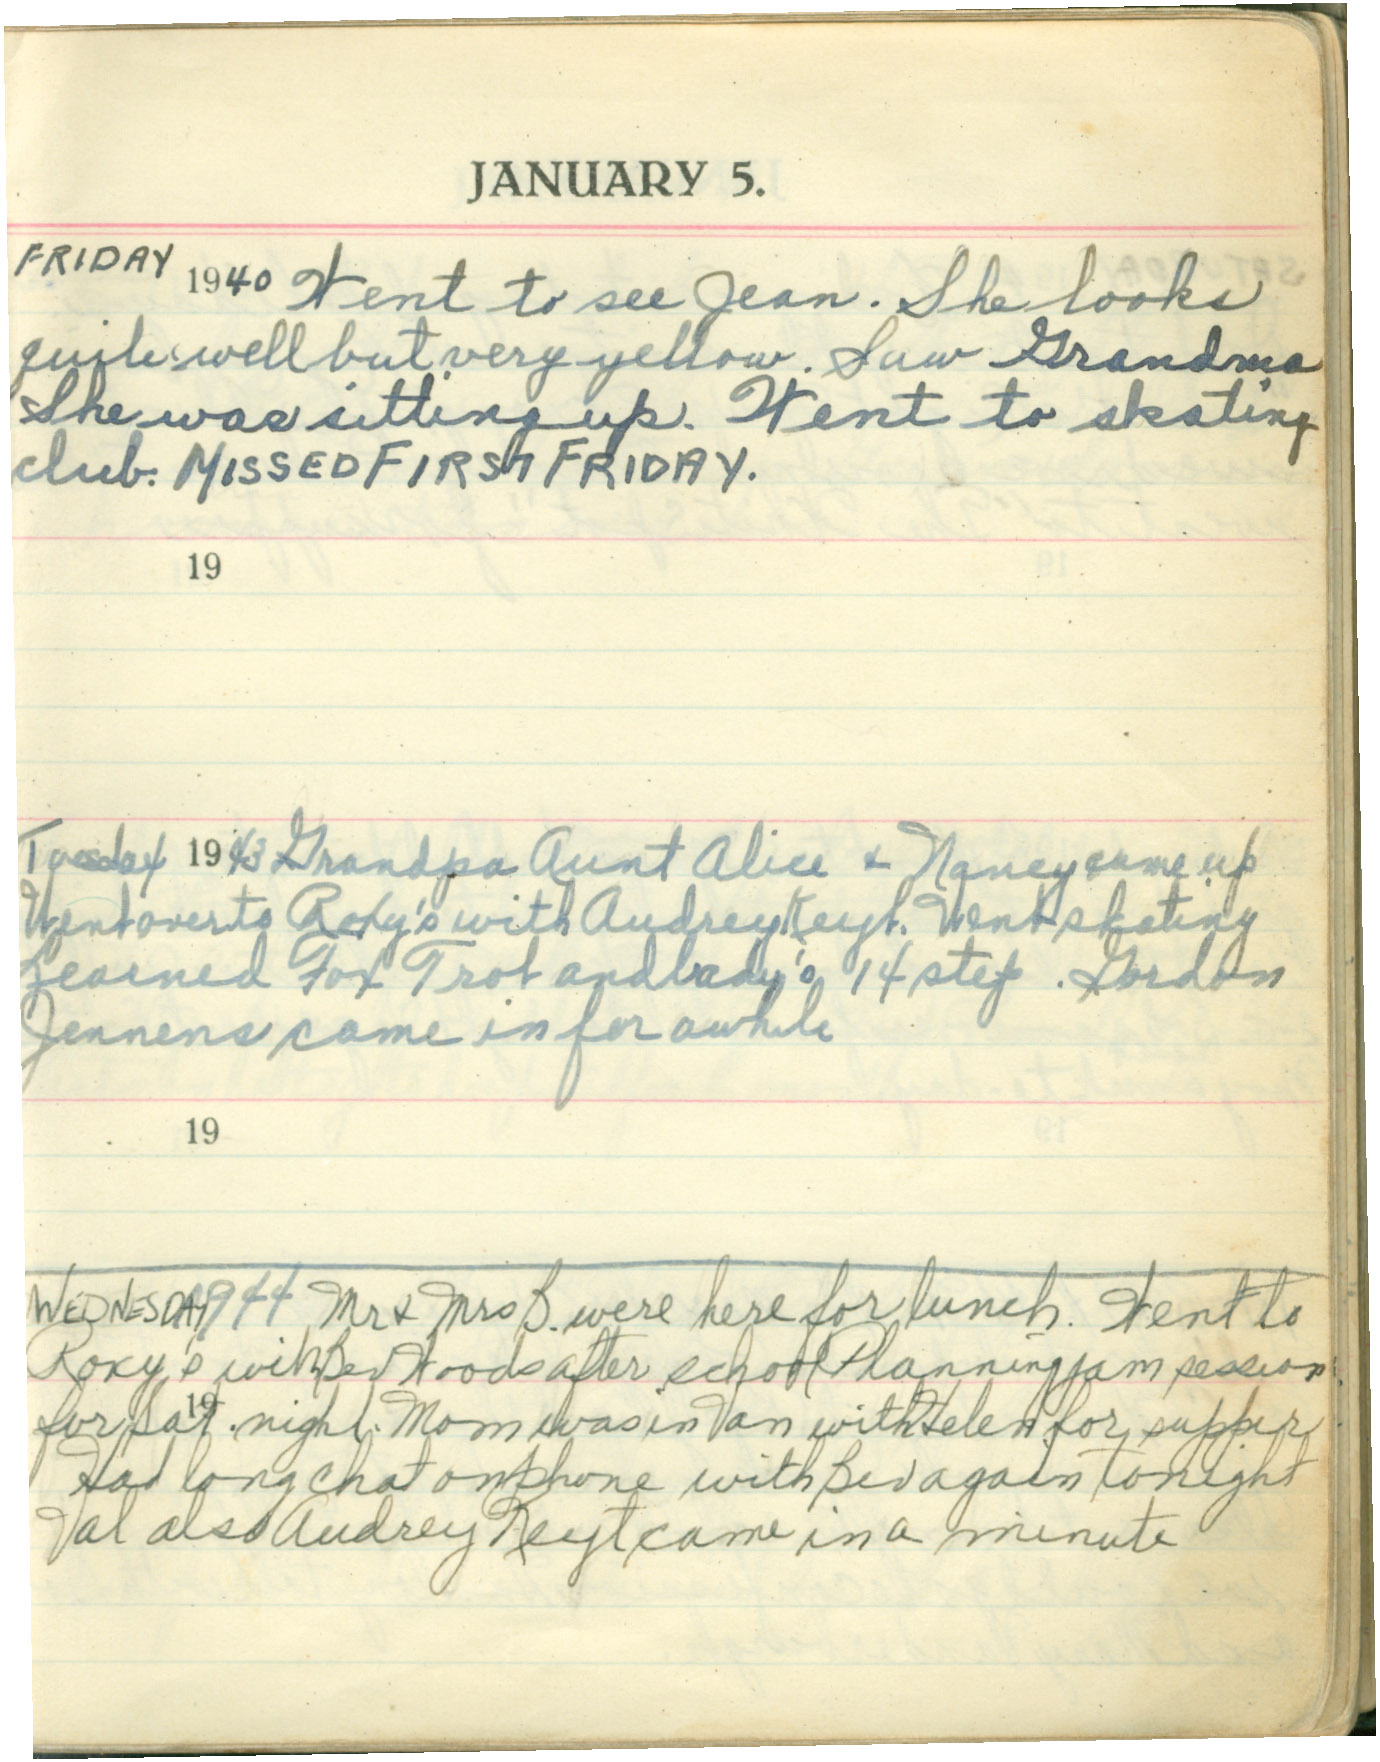 JANUARY 5.
FRIDAY 1940 Went to see Jean. She looks
quite well but very yellow. Saw Grandma
She was sitting up. Went to skating
club. MISSED FIRST FRIDAY.
19
Tuesday 1943 Grandpa Aunt Alice & Nancy came up
Went over to Roxy's with Audrey Keyt. Went skating
Learned Fox Trot and Lady's 14 step. Gordon
Jennens came in for awhile
19
WEDNESDAY 1944 Mr & Mrs B. were here for lunch. Went to
Roxy's with Bev Woods after school Planning jam session
19
for sat. night. Mom was in Van with Helen for supper
Had long chat on phone with Bev again tonight
Val also Audrey Keyt came in a minute